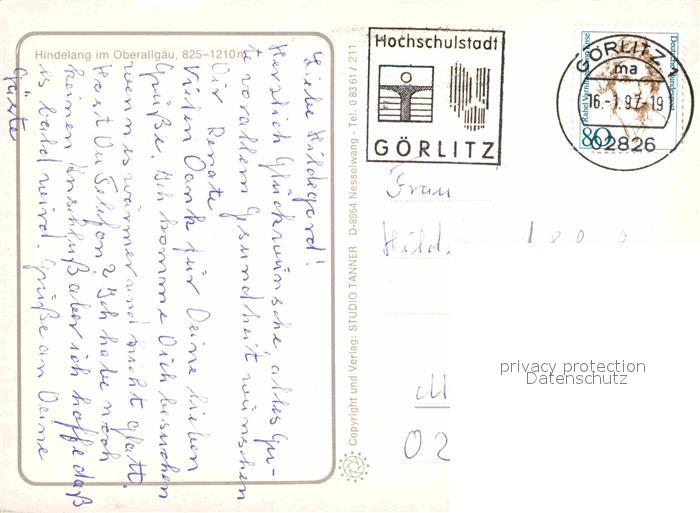 Hindelang im Oberallgäu, 825–1210 m
Liebe Hildegard!
Herzlich Glückwünsche, alles Gu-
te vorallem Gesundheit wünschen
Dir Renate
Vielen Dank für Deine lieben
Grüße. Ich komme Dich besuchen
wenn es wärmer und nicht glatt.
Hast Du Telefon? Ich habe noch
keinen Anschluß aber ich hoffe daß
es bald wird. Grüße an Deine
Gäste
Copyright und Verlag: STUDIO TANNER D-8964 Nesselwang - Tel. 0 83 61 / 211
Hochschulstadt
GÖRLITZ
GÖRLITZ 1
ma
16.-1.97-19
02826
Deutsche Bundespost
Rahel Varnhagen von Ense
80
Frau
Hild
M
02
privacy protection
Datenschutz